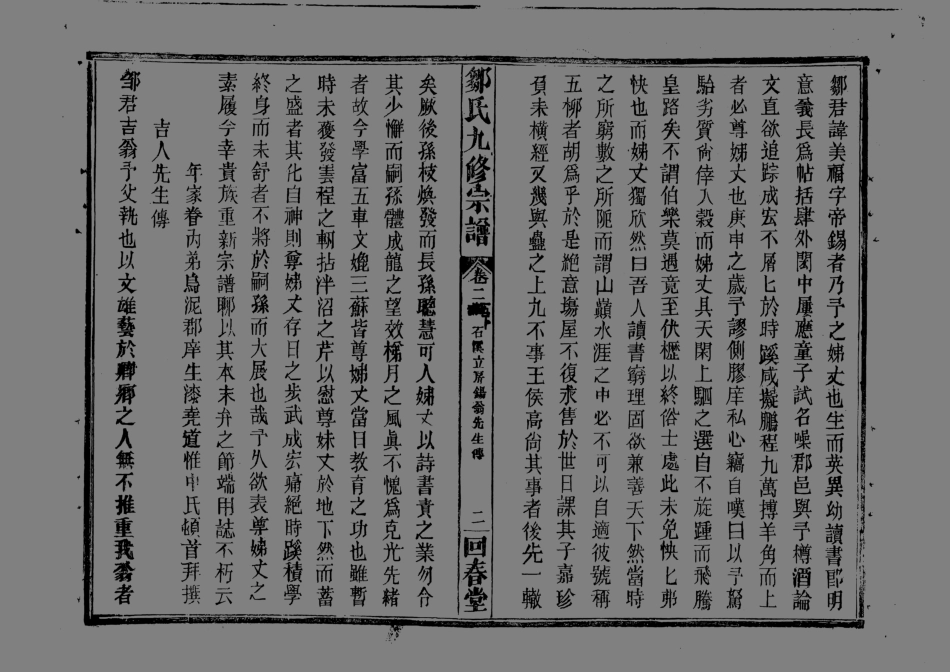 鄒君諱美福字帝錫者乃予之姊丈也生而英異幼讀書卽明
意義長爲帖括肆外閎中屢應童子試名噪郡邑與予樽酒論
文直欲追踪成宏不屑匕於時蹊咸擬鵬程九萬搏羊角而上
者必尊姊丈也庚申之歲予謬側膠庠私心竊自嘆曰以予駑
駘劣質尙倖入彀而姊丈具天閑上駟之選自不旋踵而飛騰
皇路矣不謂伯樂莫遇竟至伏櫪以終俗士處此未免怏匕弗
快也而姊丈獨欣然曰吾人讀書窮理固欲兼善天下然當時
之所窮數之所阨而謂山巔水涯之中必不可以自適彼號稱
五柳者胡爲乎於是絕意塲屋不復求售於世日課其子嘉珍
頁未橫經又幾與蠱之上九不事王侯高尙其事者後先一轍
鄒氏九修宗譜 卷二 石溪立屛錫翁先生傳 二 回春堂
矣厥後孫枝煥發而長孫聰慧可人姊丈以詩書責之業勿令
其少懈而嗣孫體成龍之望效梯月之風眞不愧爲克光先緒
者故今學富五車文媲三蘇皆尊姊丈當日教育之功也雖暫
時未獲發雲程之軔拈泮沼之芹以慰尊姊丈於地下然而蓄
之盛者其化自神則尊姊丈存日之步武成宏痛絕時蹊積學
終身而未舒者不將於嗣孫而大展也哉予久欲表尊姊丈之
素履今幸貴族重新宗譜聊以其本末弁之節端用誌不朽云
年家眷內弟鳥泥郡庠生漆堯道惟中氏頓首拜撰
吉人先生傳
邹君吉翁予父執也以文雄藝於鄉之人無不推重我翁者